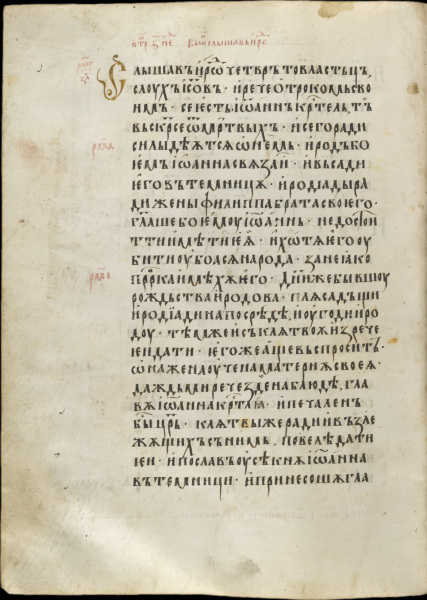 лышавъ иршⷣ четврътовластьцъ,
слоухъ іс҃овъ · и рече отрокомь сво
имъ · се естъ іѡаннъ кр҃тель, тъ
въскр҃се ѡⷮ мрⷮвыхъ · и сего ради
силы дѣѫтсѧ ѡ немь · иродъ бо
емъ іѡанна свѧза и · и въсади
его въ темницѫ · иродіады ра
ди жены филиппа брата своего ·
гл҃аше бо емоу іѡаннь · не достои
тъ ти имѣти еѧ · и хотѧ его оу
бити оубоасѧ народа · зане іако
прⷪ҇рка имѣхѫ его · дн҃и же бывшоу
рождьства иродова · плѧса дъщи
иродіадина посредѣ, и оугоди иро
доу · тѣмже и съ клѧтвоѫ изрече
еи дати · егоже аще въспроситъ ·
ѡна же наоучена материѫ своеѧ ·
даждь ми рече зде на блюдѣ, гла
вѫ іѡанна кр҃тлѣ · и печаленъ
бы црⷭ҇ь · клѧтвы же ради и възле
жѧщихъ съ нимь, повелѣ дати
еи · и пославъ оусѣкнѫ іѡанна
въ темници · и принесошѧ гла